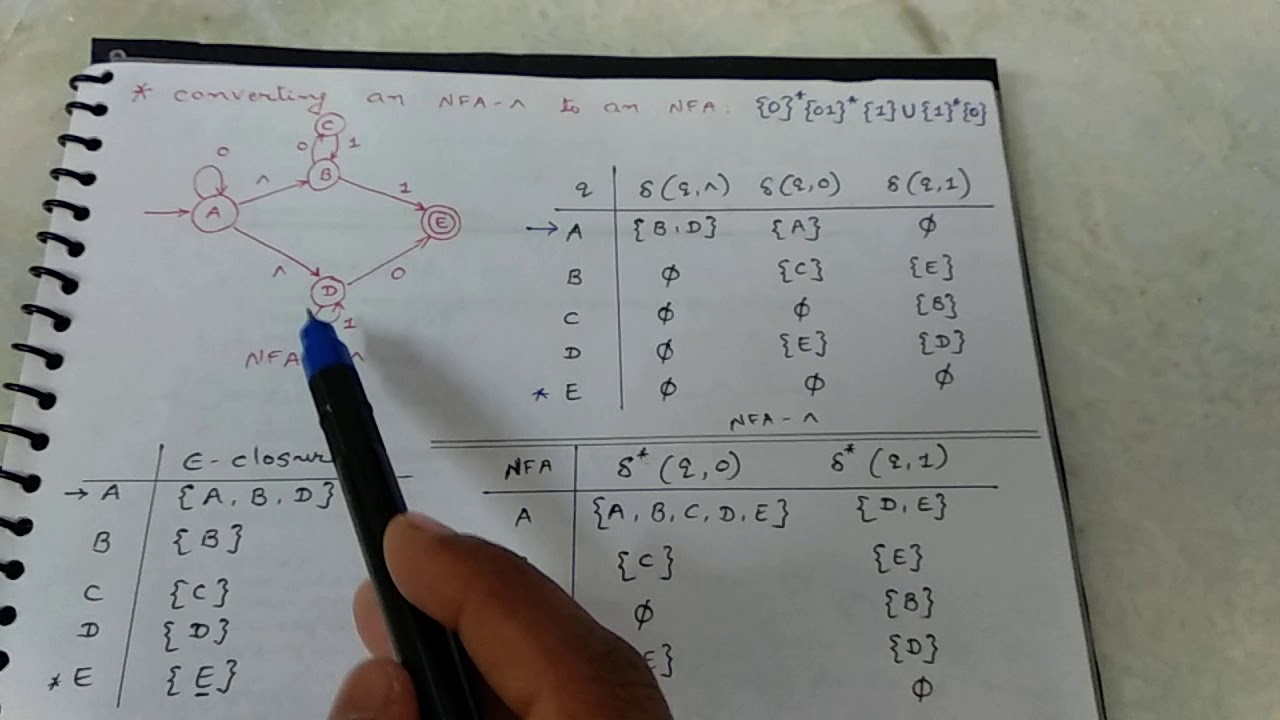 * converting an NFA-^ to an NFA: {0}*{01}*{1}∪{1}*{0}
C
0 1
0
^ B 1
A E
^ D 0
1
NFA ^
q δ(q,^) δ(q,0) δ(q,1)
→ A {B,D} {A} φ
B φ {C} {E}
C φ φ {B}
D φ {E} {D}
* E φ φ φ
NFA-^
ε-closur
→ A {A, B, D}
B {B}
C {C}
D {D}
* E {E}
NFA δ*(q,0) δ*(q,1)
A {A, B, C, D, E} {D, E}
{C} {E}
φ {B}
E} {D}
φ